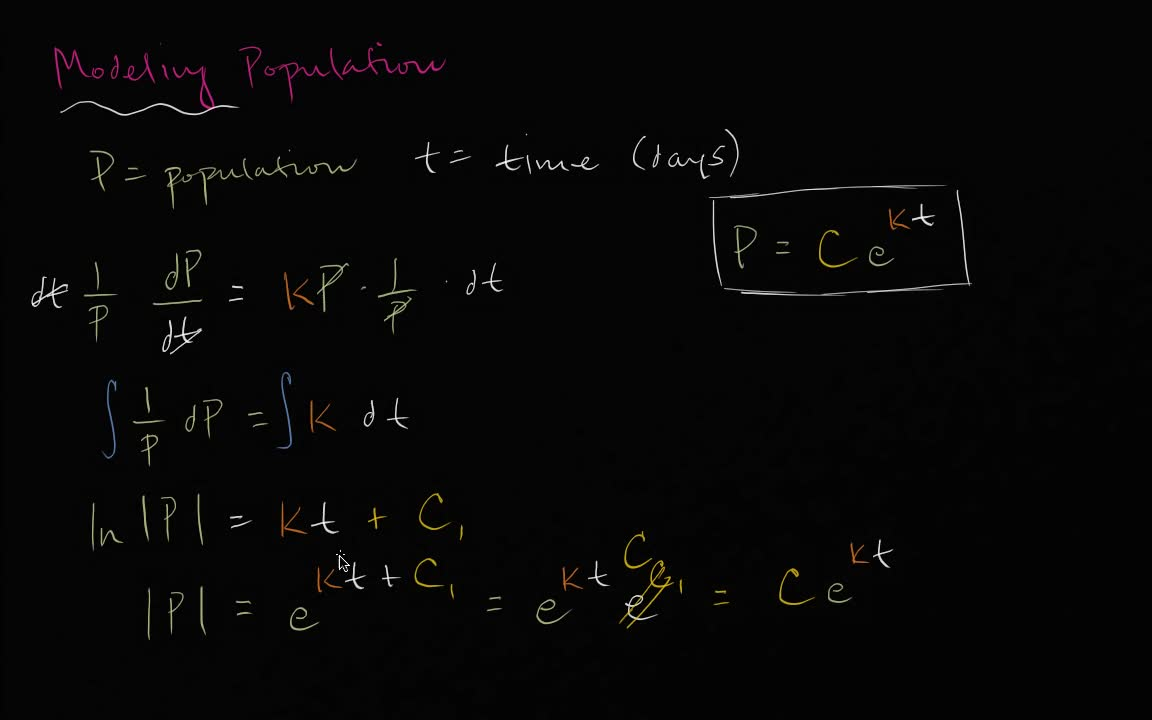 Modeling Population
P = population t = time (days)
P = C e^{kt}
dt 1/P dP/dt = kP · 1/P · dt
∫ 1/P dP = ∫ k dt
ln |P| = kt + C₁
|P| = e^{kt + C₁} = e^{kt} e^{C₁} C = C e^{kt}